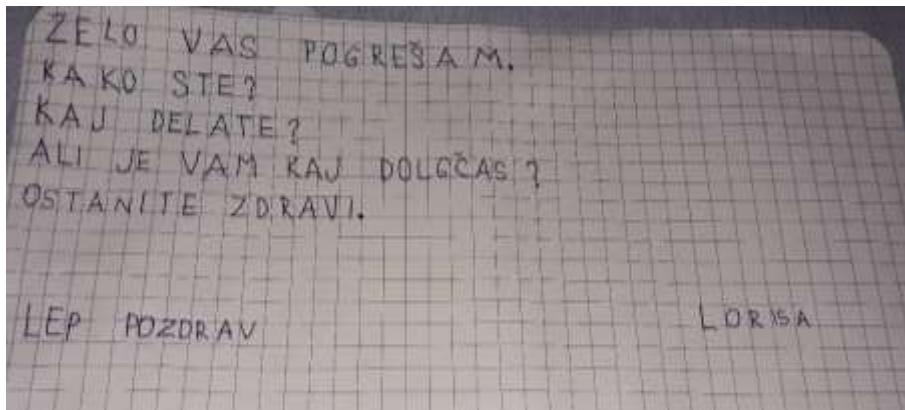 ZELO VAS POGREŠAM.
KAKO STE?
KAJ DELATE?
ALI JE VAM KAJ DOLGČAS?
OSTANITE ZDRAVI.
LEP POZDRAV LORISA